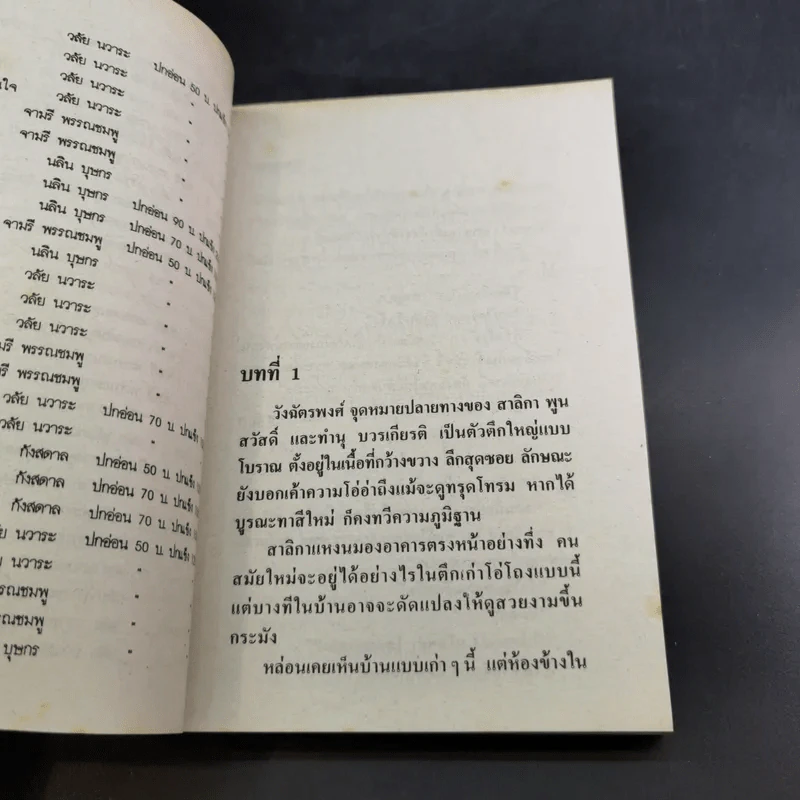 วลัย นวาระ ปกอ่อน 50 บ. ปกแข็ง
วลัย นวาระ "
วลัย นวาระ "
วลัย นวาระ "
จามรี พรรณชมพู "
จามรี พรรณชมพู "
นลิน บุษกร "
นลิน บุษกร ปกอ่อน 90 บ. ปกแข็ง
นลิน บุษกร ปกอ่อน 70 บ. ปกแข็ง
จามรี พรรณชมพู ปกอ่อน 50 บ. ปกแข็ง
นลิน บุษกร "
วลัย นวาระ "
วลัย นวาระ "
วลัย นวาระ "
พรรณชมพู "
รี พรรณชมพู "
วลัย นวาระ ปกอ่อน 70 บ. ปกแข็ง
วลัย นวาระ "
กังสดาล ปกอ่อน 50 บ. ปกแข็ง
กังสดาล ปกอ่อน 70 บ. ปกแข็ง
กังสดาล ปกอ่อน 70 บ. ปกแข็ง
นวาระ ปกอ่อน 50 บ. ปกแข็ง
นวาระ "
รรณชมพู "
รรณชมพู "
บุษกร "
บทที่ 1
วังฉัตรพงศ์ จุดหมายปลายทางของ สาลิกา พูน
สวัสดิ์ และทำนุ บวรเกียรติ เป็นตัวตึกใหญ่แบบ
โบราณ ตั้งอยู่ในเนื้อที่กว้างขวาง ลึกสุดซอย ลักษณะ
ยังบอกเค้าความโอ่อ่าถึงแม้จะดูทรุดโทรม หากได้
บูรณะทาสีใหม่ ก็คงทวีความภูมิฐาน
สาลิกาแหงนมองอาคารตรงหน้าอย่างทึ่ง คน
สมัยใหม่จะอยู่ได้อย่างไรในตึกเก่าโอ่โถงแบบนี้
แต่บางทีในบ้านอาจจะดัดแปลงให้ดูสวยงามขึ้น
กระมัง
หล่อนเคยเห็นบ้านแบบเก่า ๆ นี้ แต่ห้องข้างใน